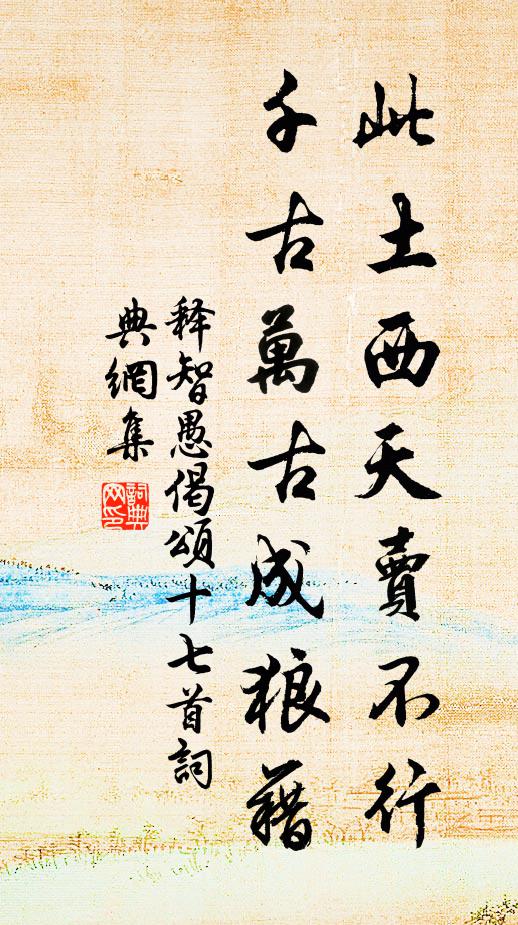 此土西天賣不行
千古萬古成狼藉
释智愚偈頌十七首詞
典網集
詞典
网印